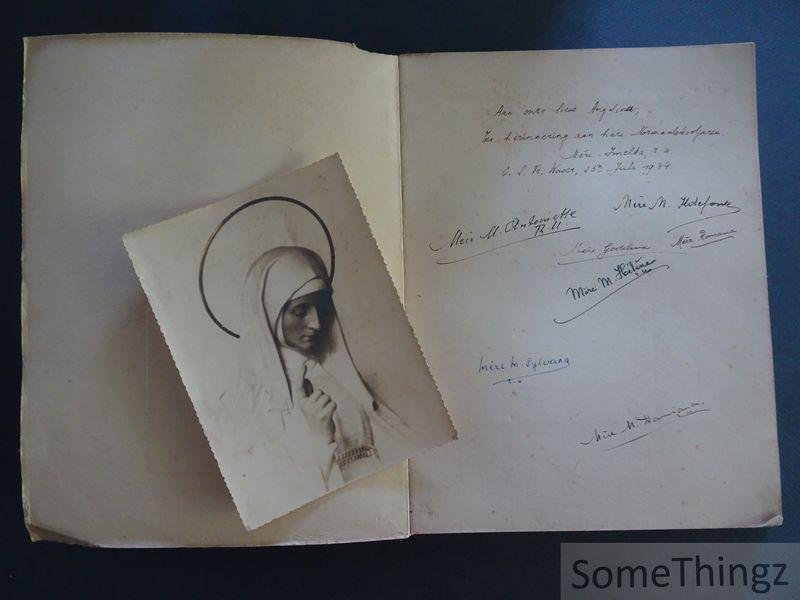 Aan onze lieve Angelina,
Ter herinnering aan hare Normaalschooljaren.
Mère Imelda, r.u.
O. L. Vr. Waver, 25n Juli 1934.
Mère M. Ildefonse
Mère M. Antoinette
R.U.
Mère Godelieve
Mère Romana
Mère M. Hélène
Mère M. Sylvana
Mère M. Damiana.
SomeThingz